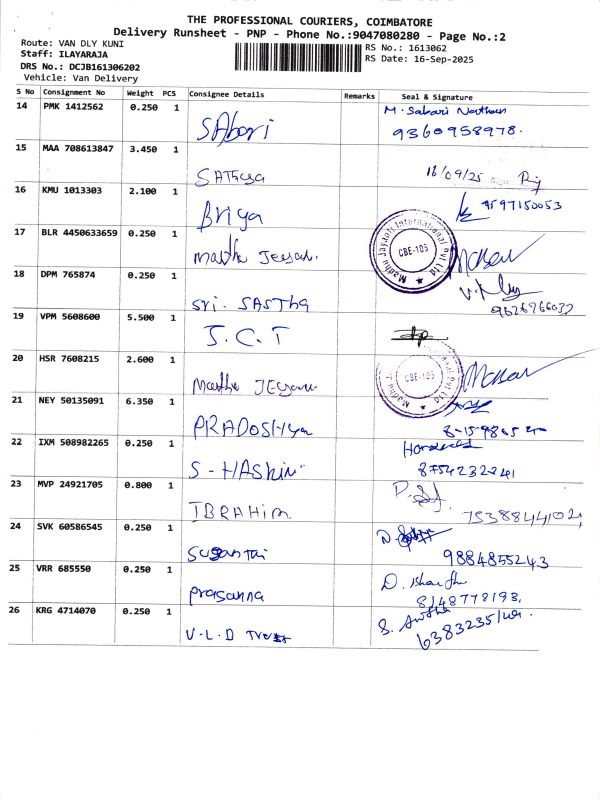 THE PROFESSIONAL COURIERS, COIMBATORE
Delivery Runsheet - PNP - Phone No.:9047080280 - Page No.:2
Route: VAN DLY KUNI
Staff: ILAYARAJA
DRS No.: DCJB161306202
Vehicle: Van Delivery
RS No.: 1613062
RS Date: 16-Sep-2025
S No Consignment No Weight PCS Consignee Details Remarks Seal & Signature
14 PMK 1412562 0.250 1 SAbari M. Sabari Nathan
9360958978.
15 MAA 708613847 3.450 1 SAThya 16/09/25
16 KMU 1013303 2.100 1 Briya 9597150053
17 BLR 4450633659 0.250 1 Madhu Jeyan. Madhu Jayanti International Pvt Ltd CBE-105
18 DPM 765874 0.250 1 Sri. SASTha
19 VPM 5608600 5.500 1 J.C.T
20 HSR 7608215 2.600 1 Madhu CBE-105
21 NEY 50135091 6.350 1 PRADOSHya
22 IXM 508982265 0.250 1 S-HASini
23 MVP 24921705 0.800 1 IBRAHIM
24 SVK 60586545 0.250 1 Suganthi 9884855243
25 VRR 685550 0.250 1 prasanna 8148778193
26 KRG 4714070 0.250 1 V.L.D Trust